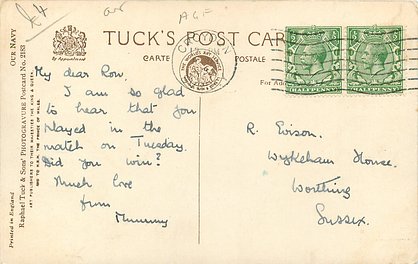 £4
A.G.F
TUCK'S POST CARD
CARTE POSTALE
By Appointment
CROYDON
HALFPENNY HALFPENNY
My dear Ron,
I am so glad
to hear that you
played in the
match on Tuesday.
Did you win?
Much love
from
Mummy
R. Evison.
Wykeham House.
Worthing
Sussex.
OUR NAVY
Raphael Tuck & Sons' "PHOTOGRAVURE" Postcard No. 2153
ART PUBLISHERS TO THEIR MAJESTIES THE KING & QUEEN,
AND TO H.R.H. THE PRINCE OF WALES.
Printed in England